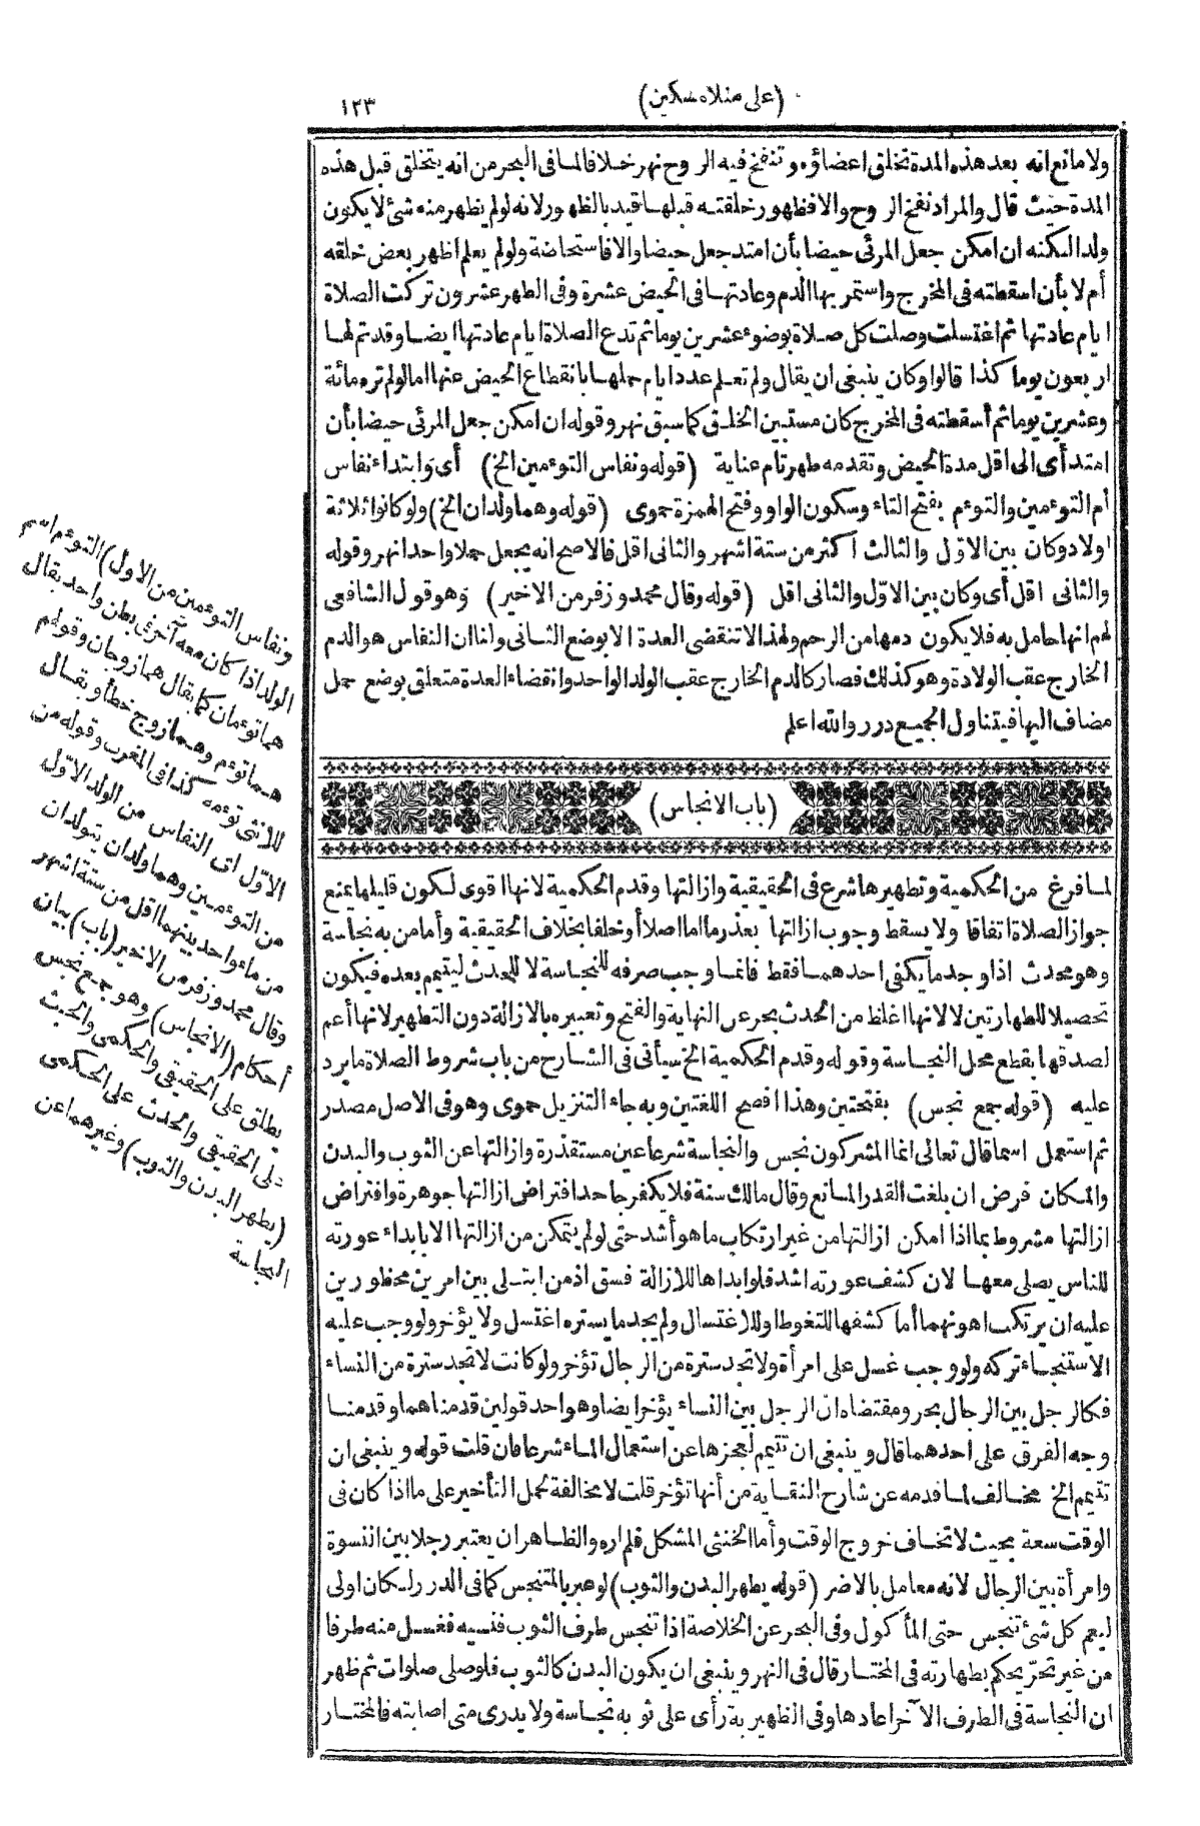 (على منلا مسكين)
١٢٣
ولا مانع انه بعد هذه المدة تخلق اعضاؤه وتنفخ فيه الروح نهر خلافا لما فى البحر من انه يتخلق قبل هذه
المدة حيث قال والمراد نفخ الروح والا فظهور خلقته قبلها قيد بالظهور لانه لو لم يظهر منه شئ لا يكون
ولدا لكنه ان امكن جعل المرئى حيضا بأن امتد جعل حيضا والا فاستحاضة ولو لم يعلم اظهر بعض خلقه
أم لا بأن اسقطته فى المخرج واستمر بها الدم وعادتها فى الحيض عشرة وفى الطهر عشرون تركت الصلاة
ايام عادتها ثم اغتسلت وصلت كل صلاة بوضوء عشرين يوما ثم تدع الصلاة ايام عادتها ايضا وقد تم لها
اربعون يوما كذا قالوا وكان ينبغى ان يقال ولم تعلم عدد ايام حملها بانقطاع الحيض عنها اما لو لم تره مائة
وعشرين يوما ثم أسقطته فى المخرج كان مستبين الخلق كما سبق نهر وقوله ان امكن جعل المرئى حيضا بأن
امتد أى الى اقل مدة الحيض وتقدمه طهر تام عناية (قوله ونفاس التوءمين الخ) أى وابتداء نفاس
أم التوءمين والتوءم بفتح التاء وسكون الواو وفتح الهمزة حموى (قوله وهما ولدان الخ) ولو كانوا ثلاثة
اولاد وكان بين الاول والثالث أكثر من ستة اشهر والثانى اقل فالاصح انه يجعل حملا واحدا نهر وقوله
والثانى اقل أى وكان بين الاوّل والثانى اقل (قوله وقال محمد وزفر من الاخير) وهو قول الشافعى
لهم انها حامل به فلا يكون دمها من الرحم ولهذا لا تنقضى العدة الا بوضع الثانى ولنا ان النفاس هو الدم
الخارج عقب الولادة وهو كذلك فصار كالدم الخارج عقب الولد الواحد وانقضاء العدة متعلق بوضع حمل
مضاف اليها فيتناول الجميع درر والله اعلم
(باب الانجاس)
لما فرغ من الحكمية وتطهيرها شرع فى الحقيقية وازالتها وقدم الحكمية لانها اقوى لكون قليلها يمنع
جواز الصلاة اتفاقا ولا يسقط وجوب ازالتها بعذر ما اما اصلا أو خلفا بخلاف الحقيقية وأما من به نجاسة
وهو محدث اذا وجد ما يكفى احدهما فقط فانما وجب صرفه للنجاسة لا للحدث ليتيمم بعده فيكون
تحصيلا للطهارتين لا لانها اغلظ من الحدث بحر عن النهاية والفتح وتعبيره بالازالة دون التطهير لانها أعم
لصدقها بقطع محل النجاسة وقوله وقدم الحكمية الخ سيأتى فى الشارح من باب شروط الصلاة ما يرد
عليه (قوله جمع نجس) بفتحتين وهذا افصح اللغتين وبه جاء التنزيل حموى وهو فى الاصل مصدر
ثم استعمل اسما قال تعالى انما المشركون نجس والنجاسة شرعا عين مستقذرة وازالتها عن الثوب والبدن
والمكان فرض ان بلغت القدر المانع وقال مالك سنة فلا يكفر جاحد افتراض ازالتها جوهرة وافتراض
ازالتها مشروط بما اذا امكن ازالتها من غير ارتكاب ما هو أشد حتى لو لم يتمكن من ازالتها الا بابداء عورته
للناس يصلى معها لان كشف عورته اشد فلو ابداها للازالة فسق اذ من ابتلى بين امرين محظورين
عليه ان يرتكب اهونهما أما كشفها للتغوط او للاغتسال ولم يجد ما يستره اغتسل ولا يؤخر ولو وجب عليه
الاستنجاء تركه ولو وجب غسل على امرأة ولا تجد سترة من الرجال تؤخر ولو كانت لا تجد سترة من النساء
فكالرجل بين الرجال بحر ومقتضاه ان الرجل بين النساء يؤخر ايضا وهو احد قولين قدمناهما وقدمنا
وجه الفرق على احدهما قال وينبغى ان تتيمم لعجزها عن استعمال الماء شرعا فان قلت قوله وينبغى ان
تتيمم الخ مخالف لما قدمه عن شارح النقاية من أنها تؤخر قلت لا مخالفة لحمل التأخير على ما اذا كان فى
الوقت سعة بحيث لا تخاف خروج الوقت وأما الخنثى المشكل فلم اره والظاهر ان يعتبر رجلا بين النسوة
وامرأة بين الرجال لانه معامل بالاضر (قوله يطهر البدن والثوب) لو عبر بالمتنجس كما فى الدرر لكان اولى
ليعم كل شئ تنجس حتى المأكول وفى البحر عن الخلاصة اذا تنجس طرف الثوب فنسيه فغسل منه طرفا
من غير تحرّ يحكم بطهارته فى المختار قال فى النهر وينبغى ان يكون البدن كالثوب فلو صلى صلوات ثم ظهر
ان النجاسة فى الطرف الآخر اعادها وفى الظهيرية رأى على ثوبه نجاسة ولا يدرى متى اصابته فالمختار
ونفاس التوءمين من الاول) التوءم اسم
الولد اذا كان معه آخر فى بطن واحد يقال
هما توءمان كما يقال هما زوجان وقولهم
هما توءم وهما زوج خطأ ويقال
للانثى توءمه كذا فى المغرب وقوله من
الاوّل اى النفاس من الولد الاوّل
من التوءمين وهما ولدان يتولدان
من ماء واحد بينهما اقل من ستة اشهر
وقال محمد وزفر من الاخير (باب) بيان
أحكام (الانجاس) وهو جمع نجس
يطلق على الحقيقى والحكمى والخبث
على الحقيقى والحدث على الحكمى
(يطهر البدن والثوب) وغيرهما عن
النجاسة